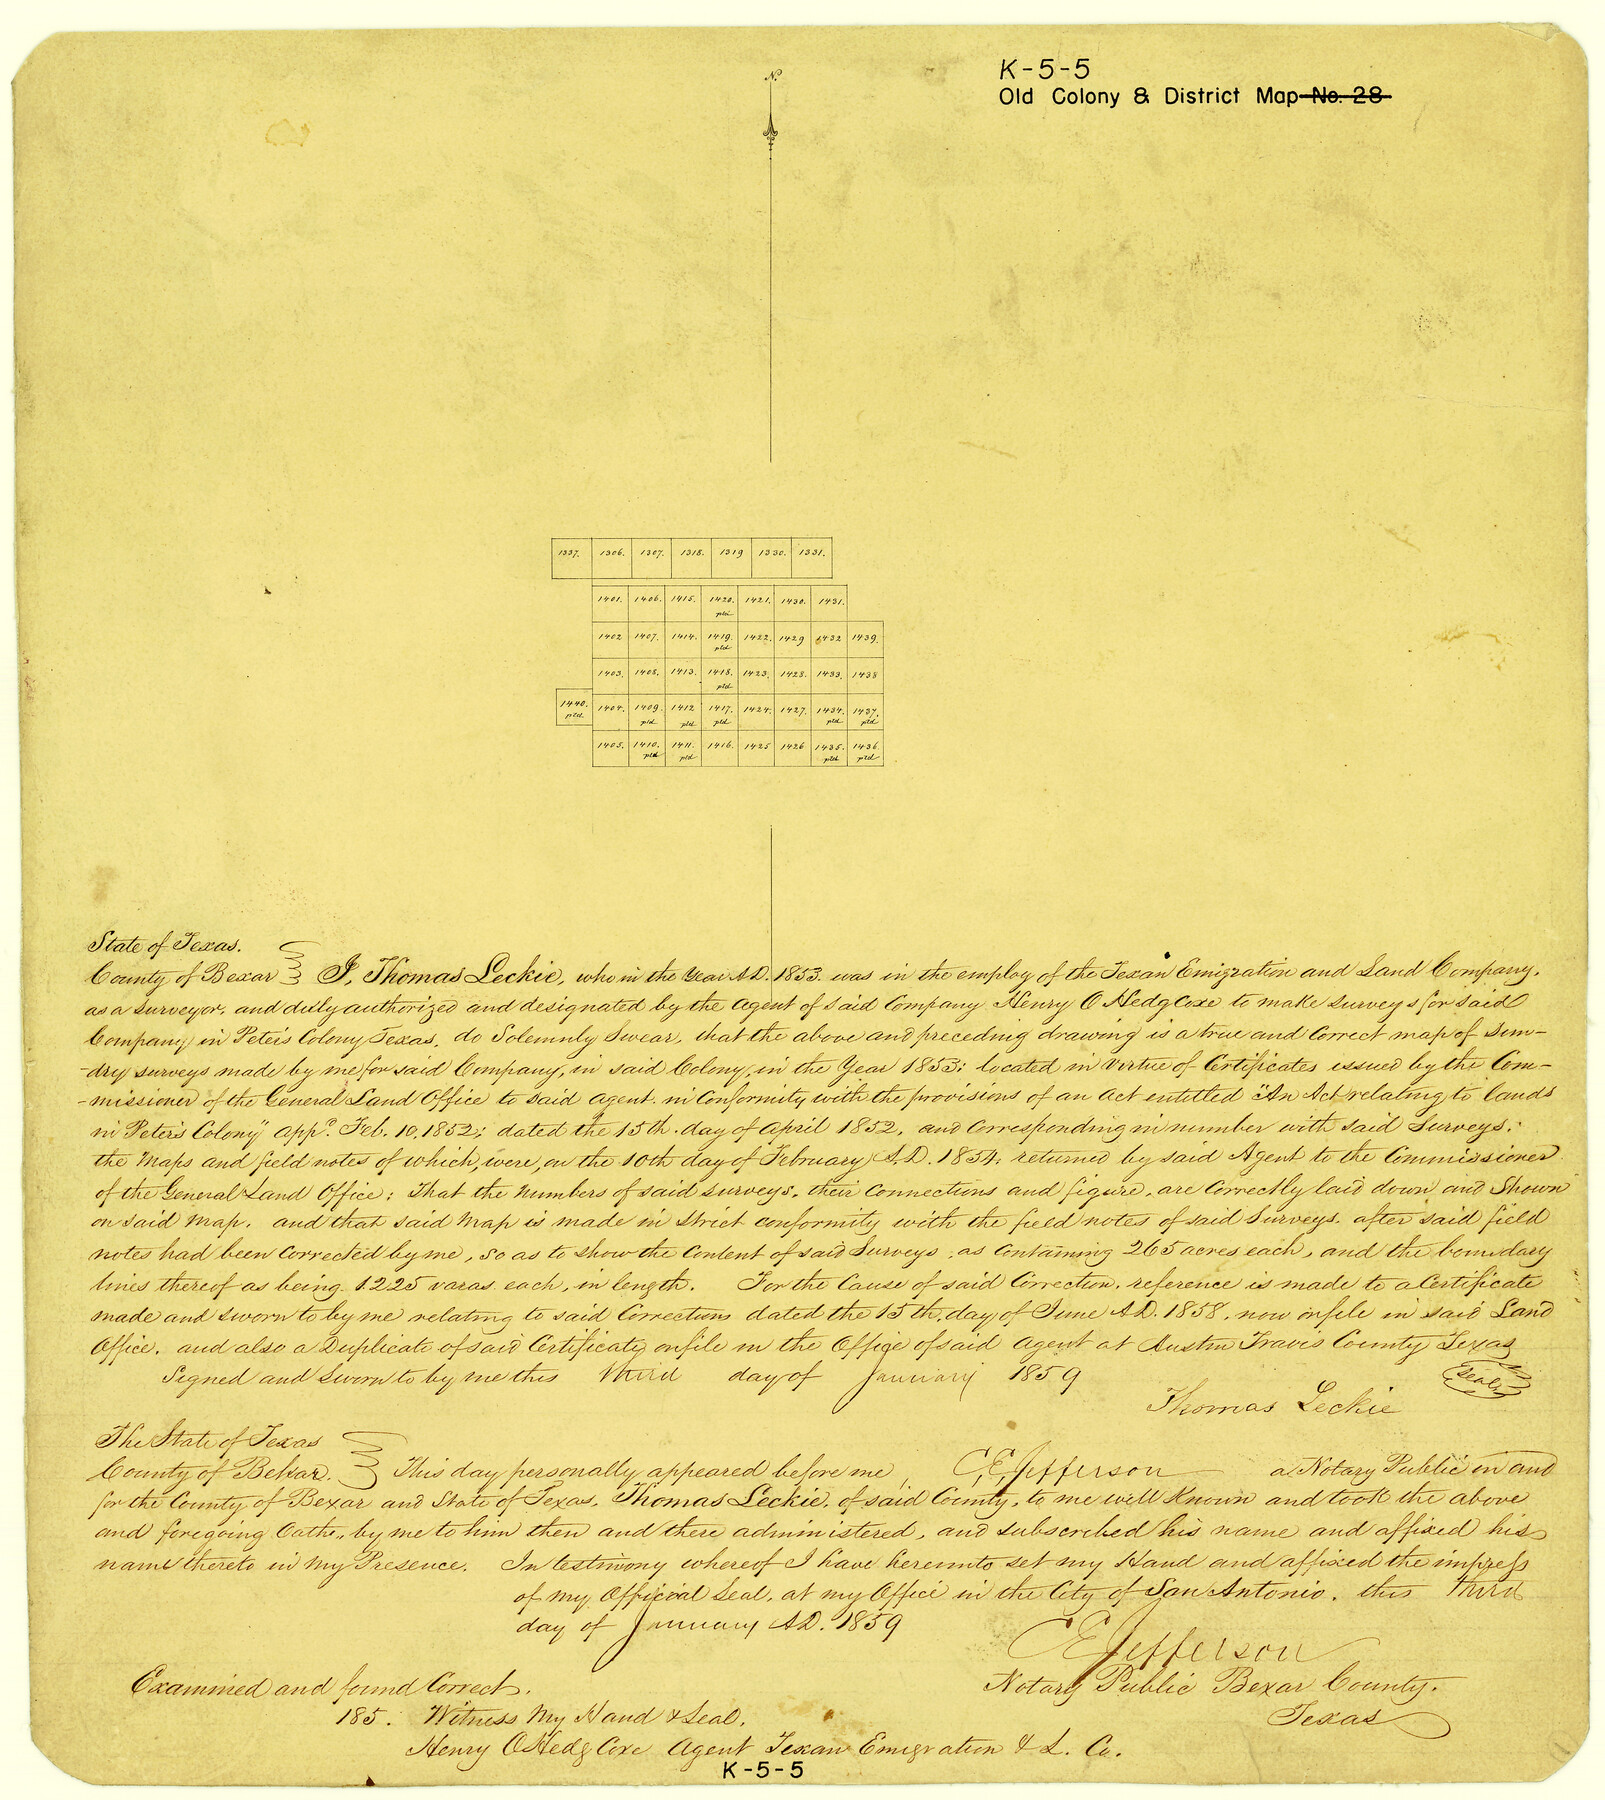 K-5-5
Old Colony & District Map No. 28
N.
1337. 1306. 1307. 1318. 1319 1330. 1331.
1401. 1406. 1415. 1420. 1421. 1430. 1431.
ptd
1402 1407. 1414. 1419. 1422. 1429 1432 1439.
ptd
1403. 1408. 1413. 1418. 1423. 1428. 1433. 1438
ptd
1440. 1404. 1409. 1412 1417. 1424. 1427. 1434. 1437.
ptd ptd ptd ptd ptd ptd
1405. 1410. 1411. 1416. 1425 1426 1435. 1436.
ptd ptd ptd ptd
State of Texas.
County of Bexar I, Thomas Leckie, who in the Year A.D. 1853. was in the employ of the Texan Emigration and Land Company.
as a surveyor, and duly authorized and designated by the agent of said Company Henry O Hedgcoxe to make surveys for said
Company in Peters Colony Texas, do Solemnly Swear, that the above and preceding drawing is a true and Correct map of Sun-
-dry surveys made by me for said Company, in said Colony, in the Year 1853; located in virtue of Certificates issued by the Com-
-missioner of the General Land Office to said agent in Conformity with the provisions of an act entitled "An Act relating to lands
in Peter's Colony" appd. Feb. 10, 1852; dated the 15th. day of April 1852, and Corresponding in number with said Surveys;
the Maps and field notes of which, were, on the 10th day of February A.D. 1854, returned by said Agent to the Commissioner
of the General Land Office; That the numbers of said surveys, their Connections and figure, are Correctly laid down and Shown
on said Map, and that said Map is made in Strict conformity with the field notes of said Surveys, after said field
notes had been corrected by me, so as to show the Content of said Surveys, as containing 265 acres each, and the boundary
lines thereof as being 1225 varas each, in length. For the Cause of said Correction, reference is made to a Certificate
made and sworn to by me relating to said Corrections dated the 15th, day of June A.D. 1858, now on file in said Land
Office, and also a Duplicate of said Certificate on file in the Office of said agent at Austin Travis County Texas
Signed and Sworn to by me this third day of January 1859
Seal
Thomas Leckie
The State of Texas
County of Bexar. This day personally appeared before me, C, E, Jefferson a Notary Public in and
for the County of Bexar and State of Texas, Thomas Leckie, of said County, to me well Known and took the above
and foregoing Oathe, by me to him then and there administered, and subscribed his name and affixed his
name thereto in my Presence. In testimony whereof I have hereunto set my Hand and affixed the impress
of my Official Seal, at my Office in the City of San Antonio, this third
day of January A.D. 1859
C E Jefferson
Notary Public Bexar County.
Texas
Examined and found Correct.
185 . Witness My Hand & Seal.
Henry O Hedgcoxe Agent Texan Emigration & L. Co.
K-5-5